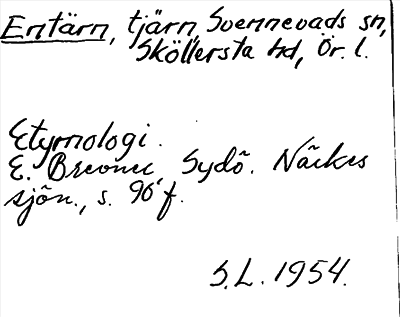 Entärn, tjärn, Svennevads sn,
Sköllersta hd, Ör. l.
Etymologi.
E. Brevner, Sydö. Närkes
sjön., s. 96 f.
S.L. 1954.